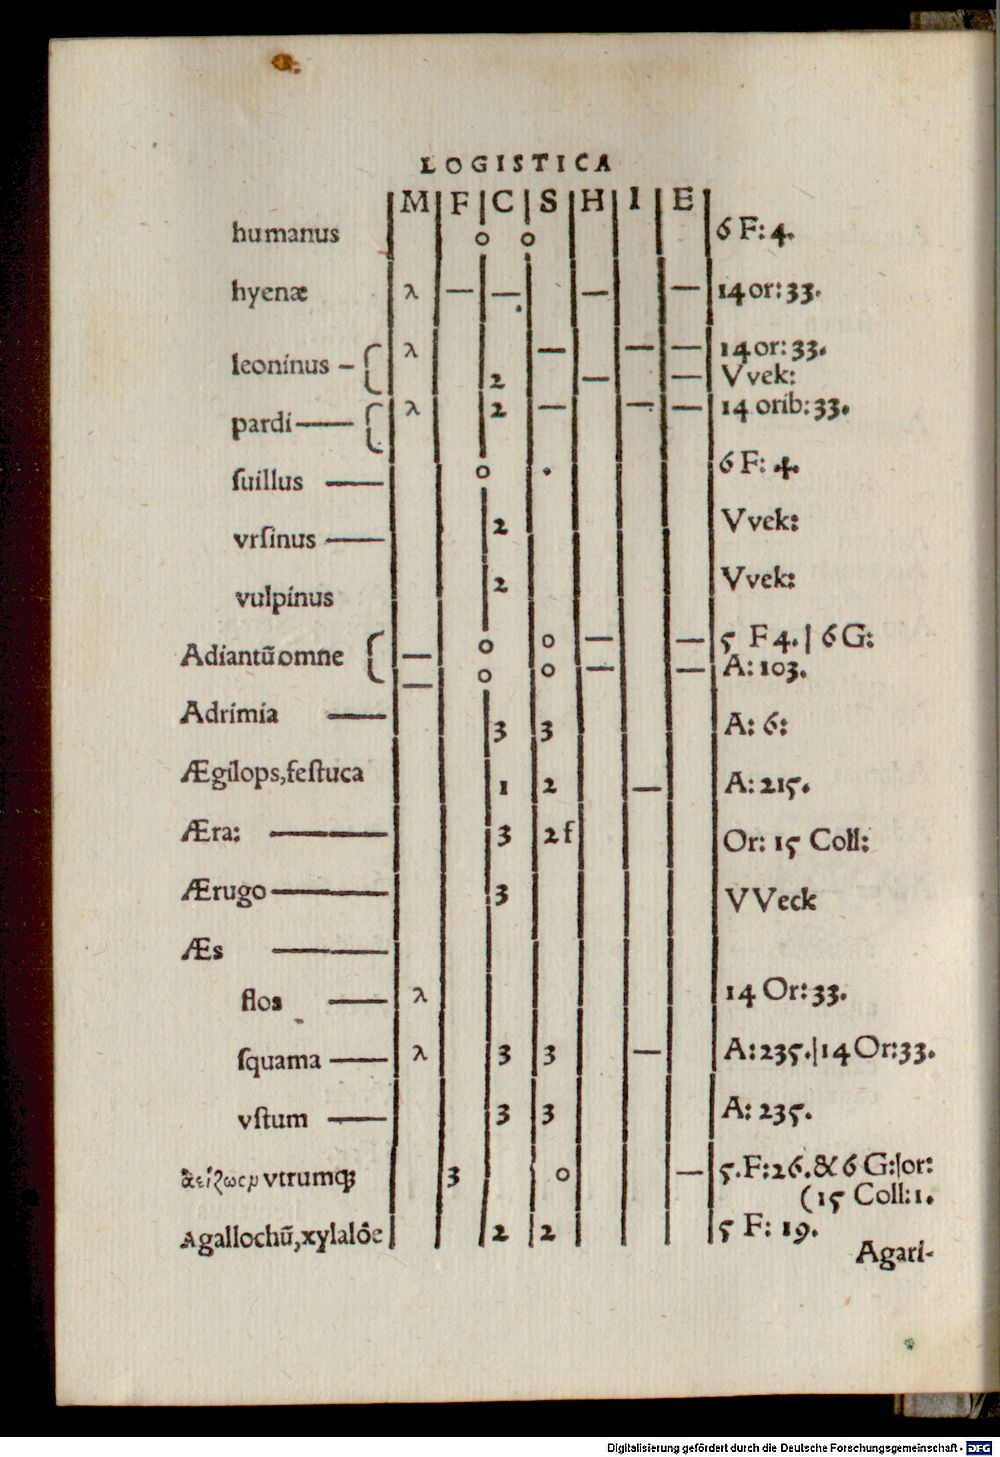 LOGISTICA
M F C S H I E
humanus o o 6 F: 4.
hyenæ λ — — — — 14 or: 33.
leoninus — λ — — — 14 or: 33.
2 — — Vvek:
pardi — λ 2 — — — 14 orib: 33.
ſuillus — o . 6 F: 4.
vrſinus — 2 Vvek:
vulpinus 2 Vvek:
Adiantũ omne — o o — — 5 F 4. | 6 G:
— o o — — A: 103.
Adrimia — 3 3 A: 6:
Ægilops, feſtuca 1 2 — A: 215.
Æra: — 3 2 f Or: 15 Coll:
Ærugo — 3 VVeck
Æs —
flos — λ 14 Or: 33.
ſquama — λ 3 3 — A: 235. | 14 Or: 33.
vſtum — 3 3 A: 235.
vtrumq; 3 o — 5. F: 26. & 6 G: | or:
(15 Coll: 1.
Agallochũ, xylalôe 2 2 5 F: 19.
Agari-
Digitalisierung gefördert durch die Deutsche Forschungsgemeinschaft - DFG